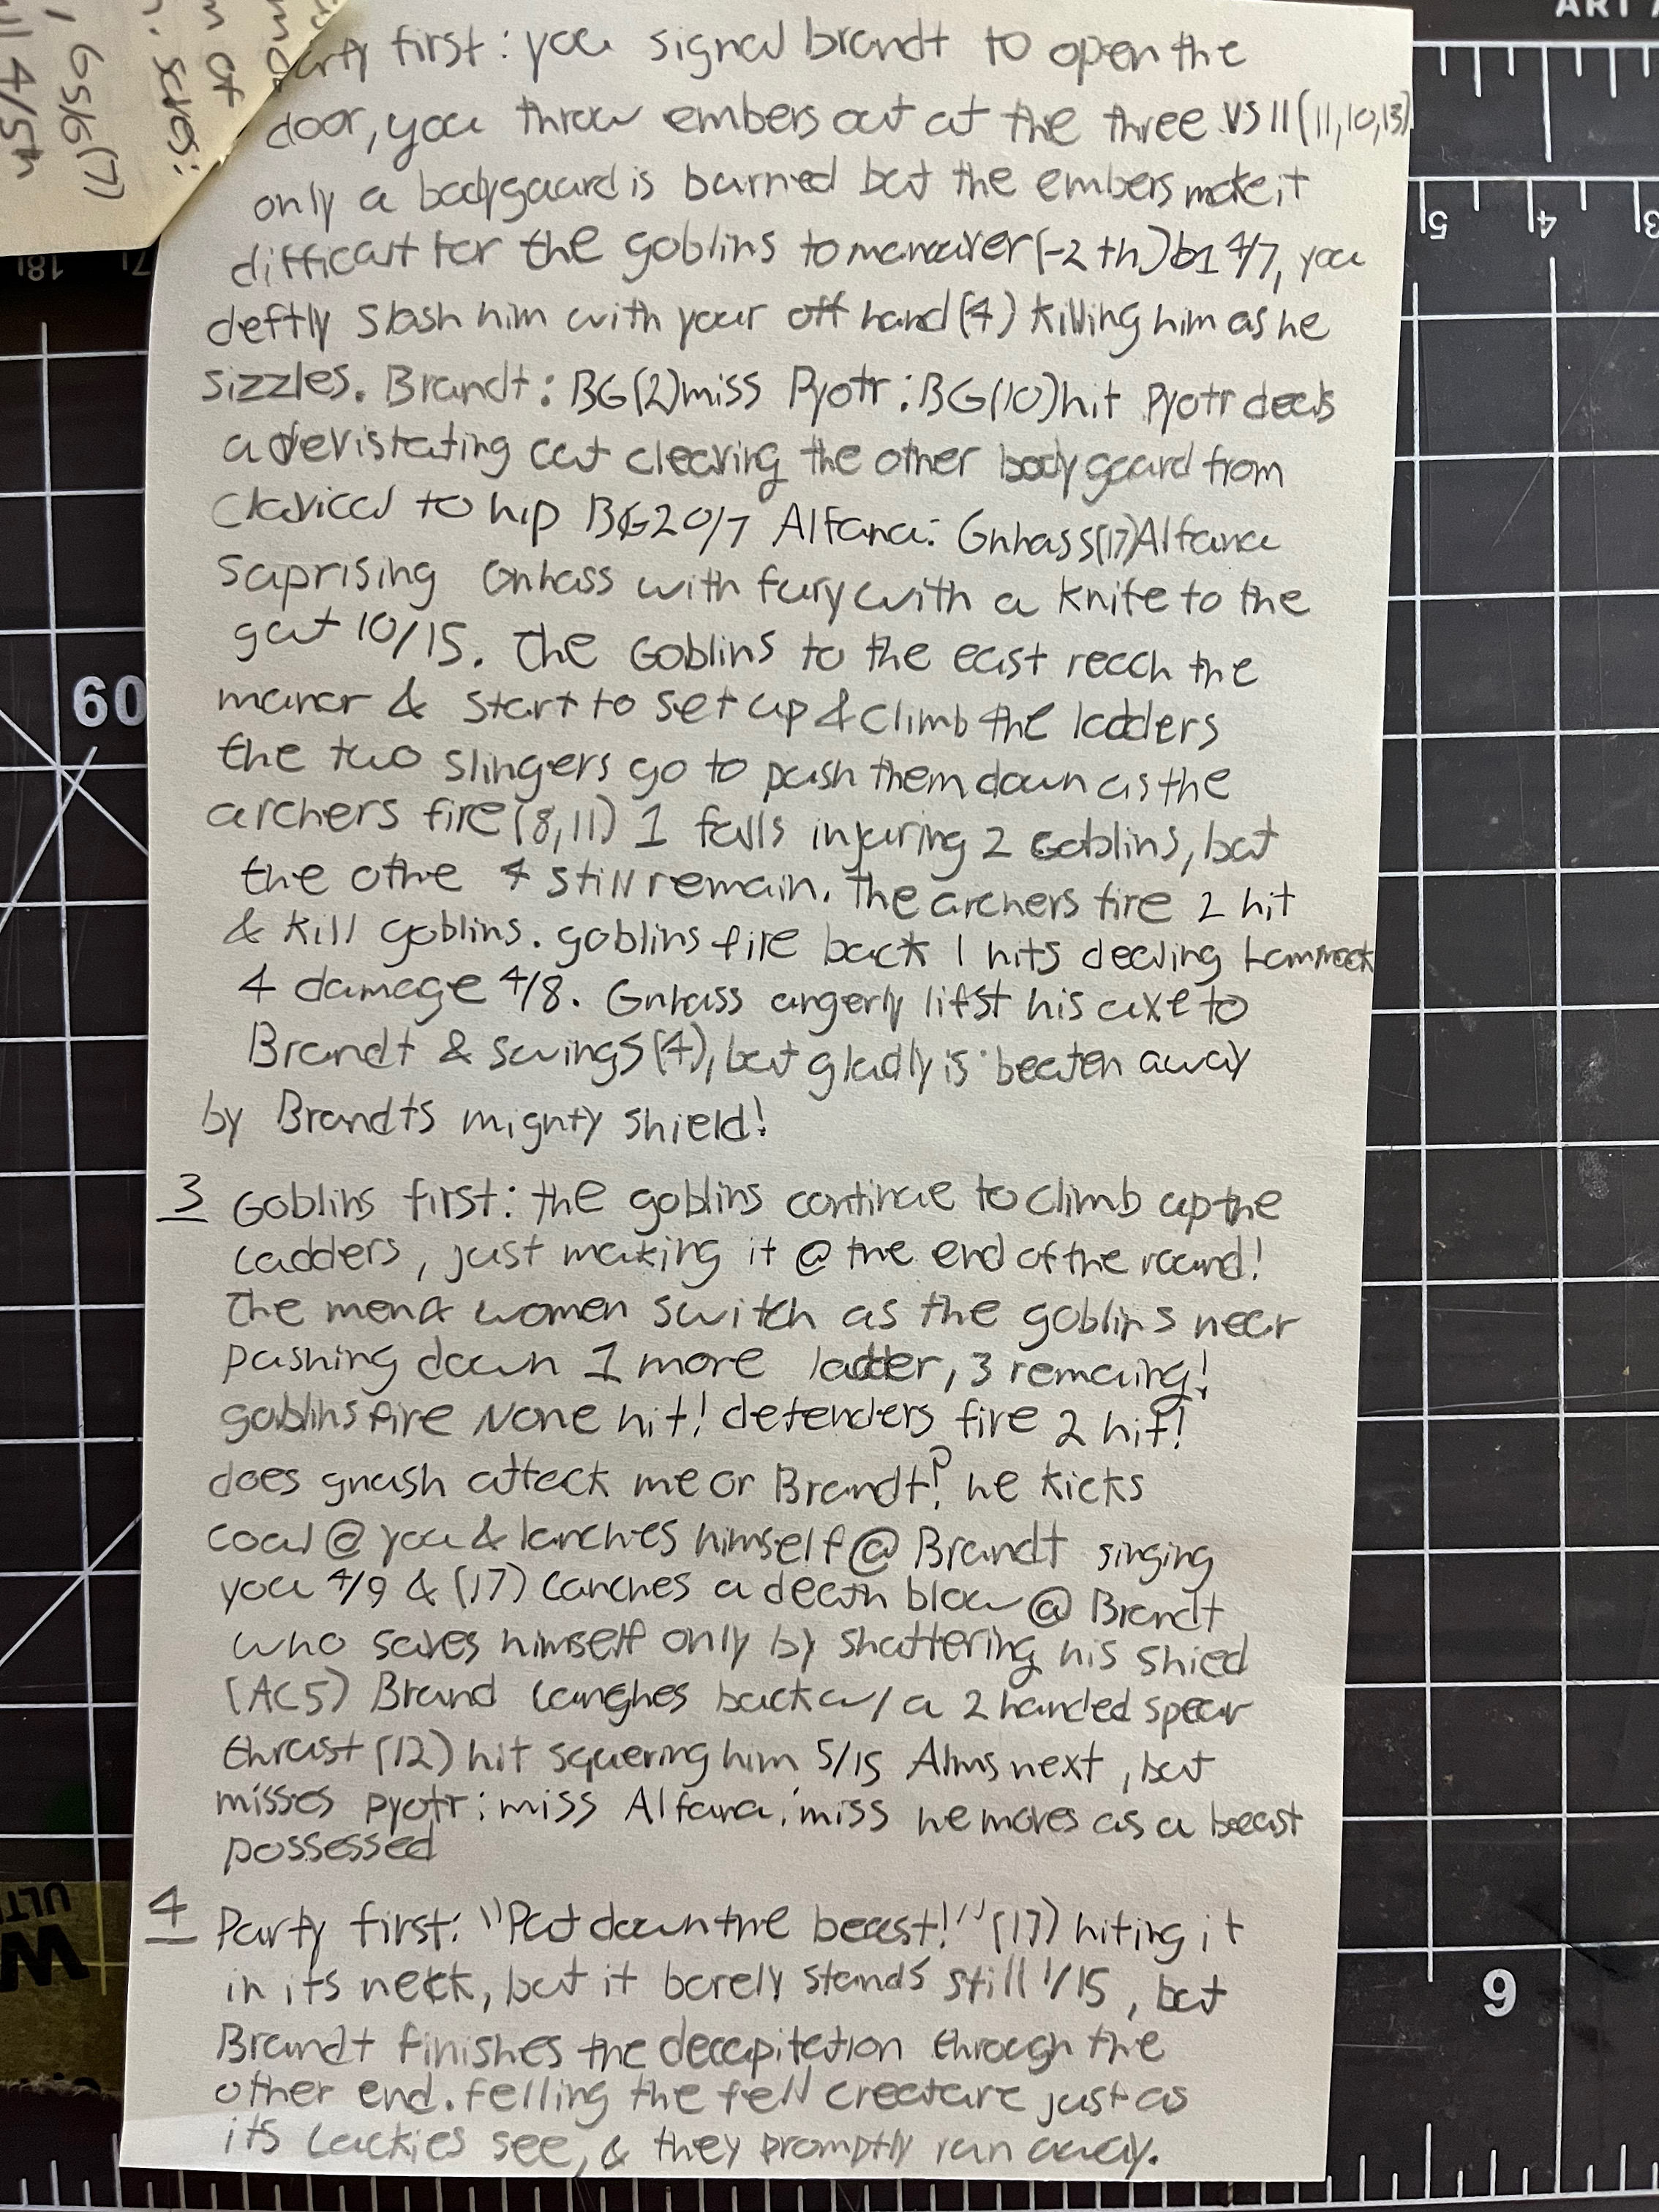 arty first: you signal brandt to open the
door, you throw embers out at the three vs 11 (11,10,13)
only a bodyguard is burned but the embers make it
difficult for the goblins to manauver (-2 th) b1 4/7, you
deftly slash him with your off hand (4) killing him as he
sizzles. Brandt: BG(2) miss Pyotr: BG(10) hit Pyotr deals
a devistating cut cleaving the other bodyguard from
Clavical to hip BG2 0/7 Alfana: Gnhass(17) Alfana
Saprising Gnhass with fury with a knife to the
gut 10/15. The Goblins to the east reach the
manor & start to set up & climb the ladders
the two slingers go to push them down as the
archers fire (8,11) 1 falls injuring 2 Goblins, but
the othe 4 still remain. The archers fire 2 hit
& kill goblins. goblins fire back 1 hits dealing
4 damage 4/8. Gnhass angerly lifst his axe to
Brandt & swings (4), but gladly is beaten away
by Brandts mighty shield!
3 Goblins first: the goblins continue to climb up the
Ladders, just making it @ the end of the round!
The men & women switch as the goblins near
pushing down 1 more ladder, 3 remaing!
goblins fire None hit! defenders fire 2 hit!
does gnash attack me or Brandt? he kicks
coal @ you & lanches himself @ Brandt singing
you 4/9 & (17) Lanches a death blow @ Brandt
who saves himself only by shattering his shied
(AC5) Brand Laughes back w/ a 2 handed spear
thrust (12) hit squering him 5/15 Alms next, but
misses pyotr: miss Alfana: miss he moves as a beast
possessed
4 Party first: "Put down the beast!" (17) hiting it
in its neck, but it barely stands still 1/15, but
Brandt finishes the decapitation through the
other end. felling the fell creature just as
its Lackies see, & they promptly run away.
60
18
5
4
3
9
ART
6s/6(7)
4/5th
of